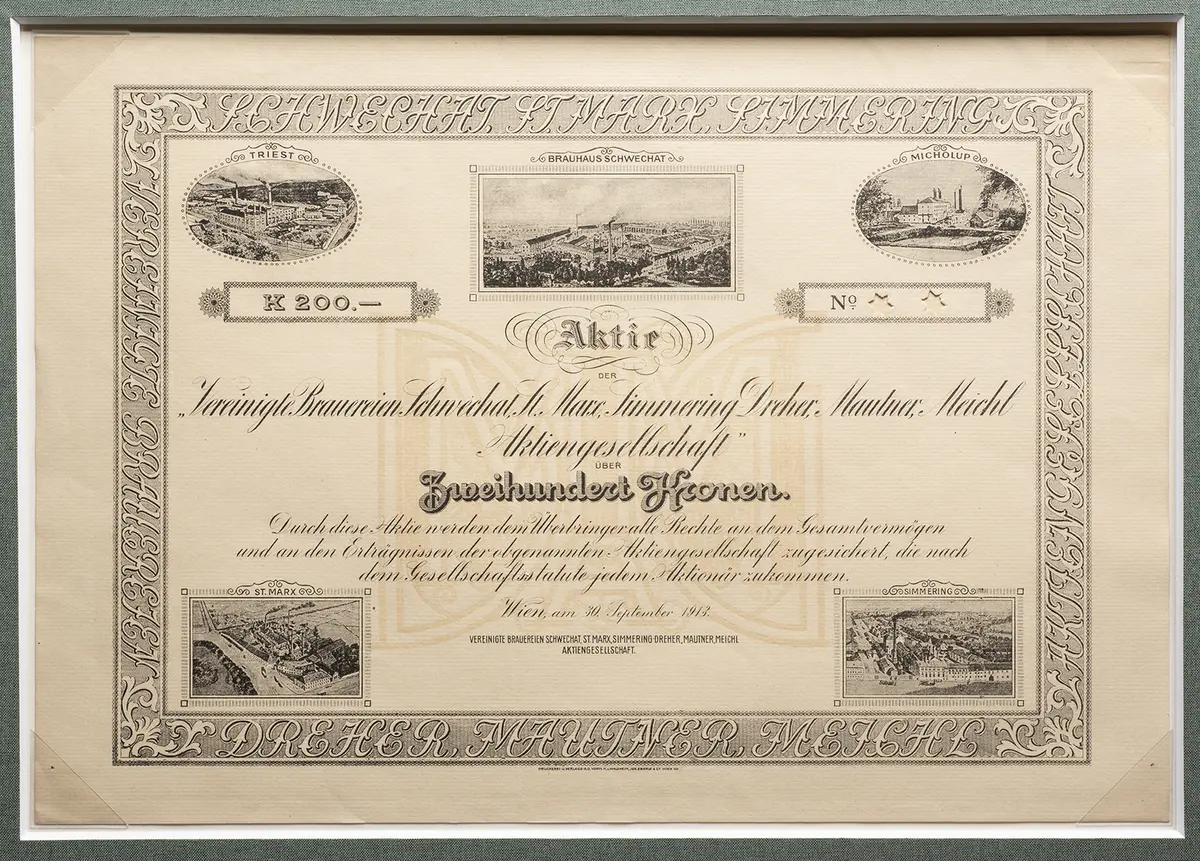 SCHWECHAT, ST. MARX, SIMMERING
VEREINIGTE BRAUEREIEN
AKTIENGESELLSCHAFT
TRIEST
BRAUHAUS SCHWECHAT
MICHOLUP
K 200.—
No
Aktie
DER
„Vereinigte Brauereien Schwechat, St. Marx, Simmering Dreher, Mautner, Meichl
Aktiengesellschaft"
ÜBER
Zweihundert Kronen.
Durch diese Aktie werden dem Überbringer alle Rechte an dem Gesamtvermögen
und an den Erträgnissen der obgenannten Aktiengesellschaft zugesichert, die nach
dem Gesellschaftsstatute jedem Aktionär zukommen.
ST. MARX
SIMMERING
Wien, am 30. September 1913.
VEREINIGTE BRAUEREIEN SCHWECHAT, ST. MARX, SIMMERING-DREHER, MAUTNER, MEICHL
AKTIENGESELLSCHAFT.
DREHER, MAUTNER, MEICHL